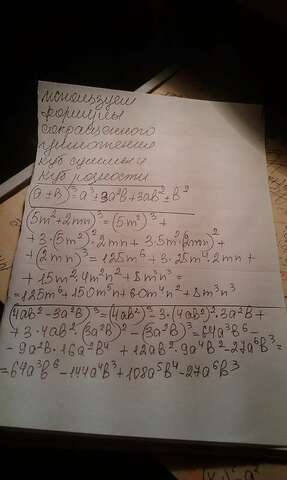 используем
формулы
сокращенного
умножения
куб суммы и
куб разности
(a ± b)³ = a³ ± 3a²b + 3ab² ± b²
(5m² + 2mn)³ = (5m²)³ +
+ 3·(5m²)²·2mn + 3·5m²(2mn)² +
+ (2mn)³ = 125m⁶ + 3·25m⁴·2mn +
+ 15m²·4m²n² + 8m³n³ =
= 125m⁶ + 150m⁵n + 60m⁴n² + 8m³n³
(4ab² - 3a²b)³ = (4ab²)³ - 3·(4ab²)²·3a²b +
+ 3·4ab²·(3a²b)² - (3a²b)³ = 64a³b⁶ -
- 9a²b·16a²b⁴ + 12ab²·9a⁴b² - 27a⁶b³ =
= 64a³b⁶ - 144a⁴b³ + 108a⁵b⁴ - 27a⁶b³